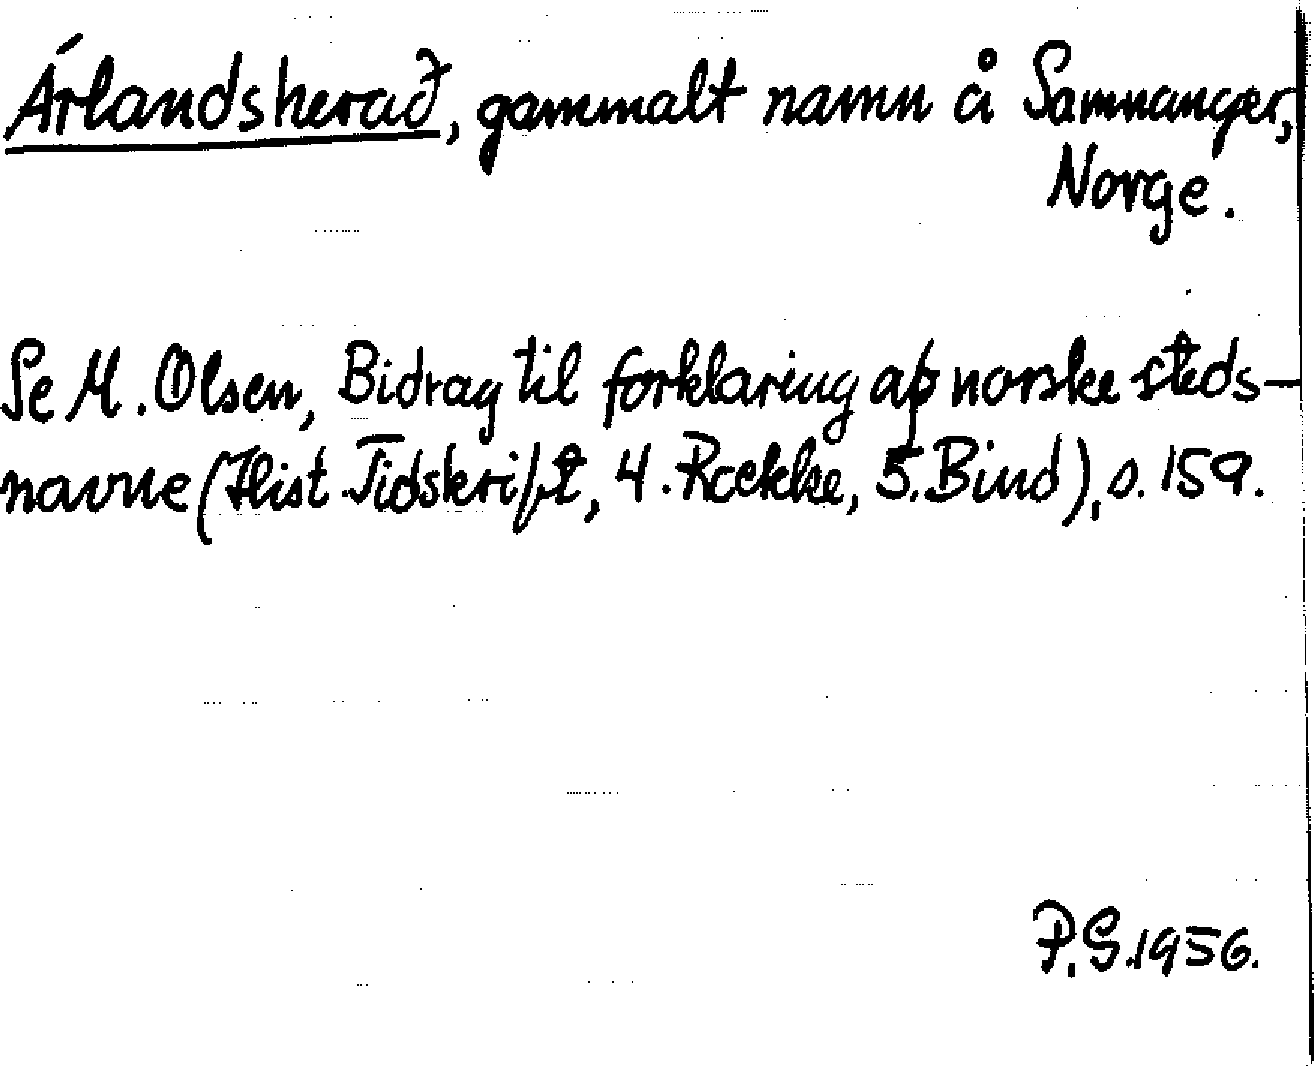 Árlandsherað, gammalt namn å Samnanger,
Norge.
Se M. Olsen, Bidrag til forklaring af norske steds-
navne (Hist. Tidskrift, 4. Række, 5. Bind), s. 159.
P.S. 1956.